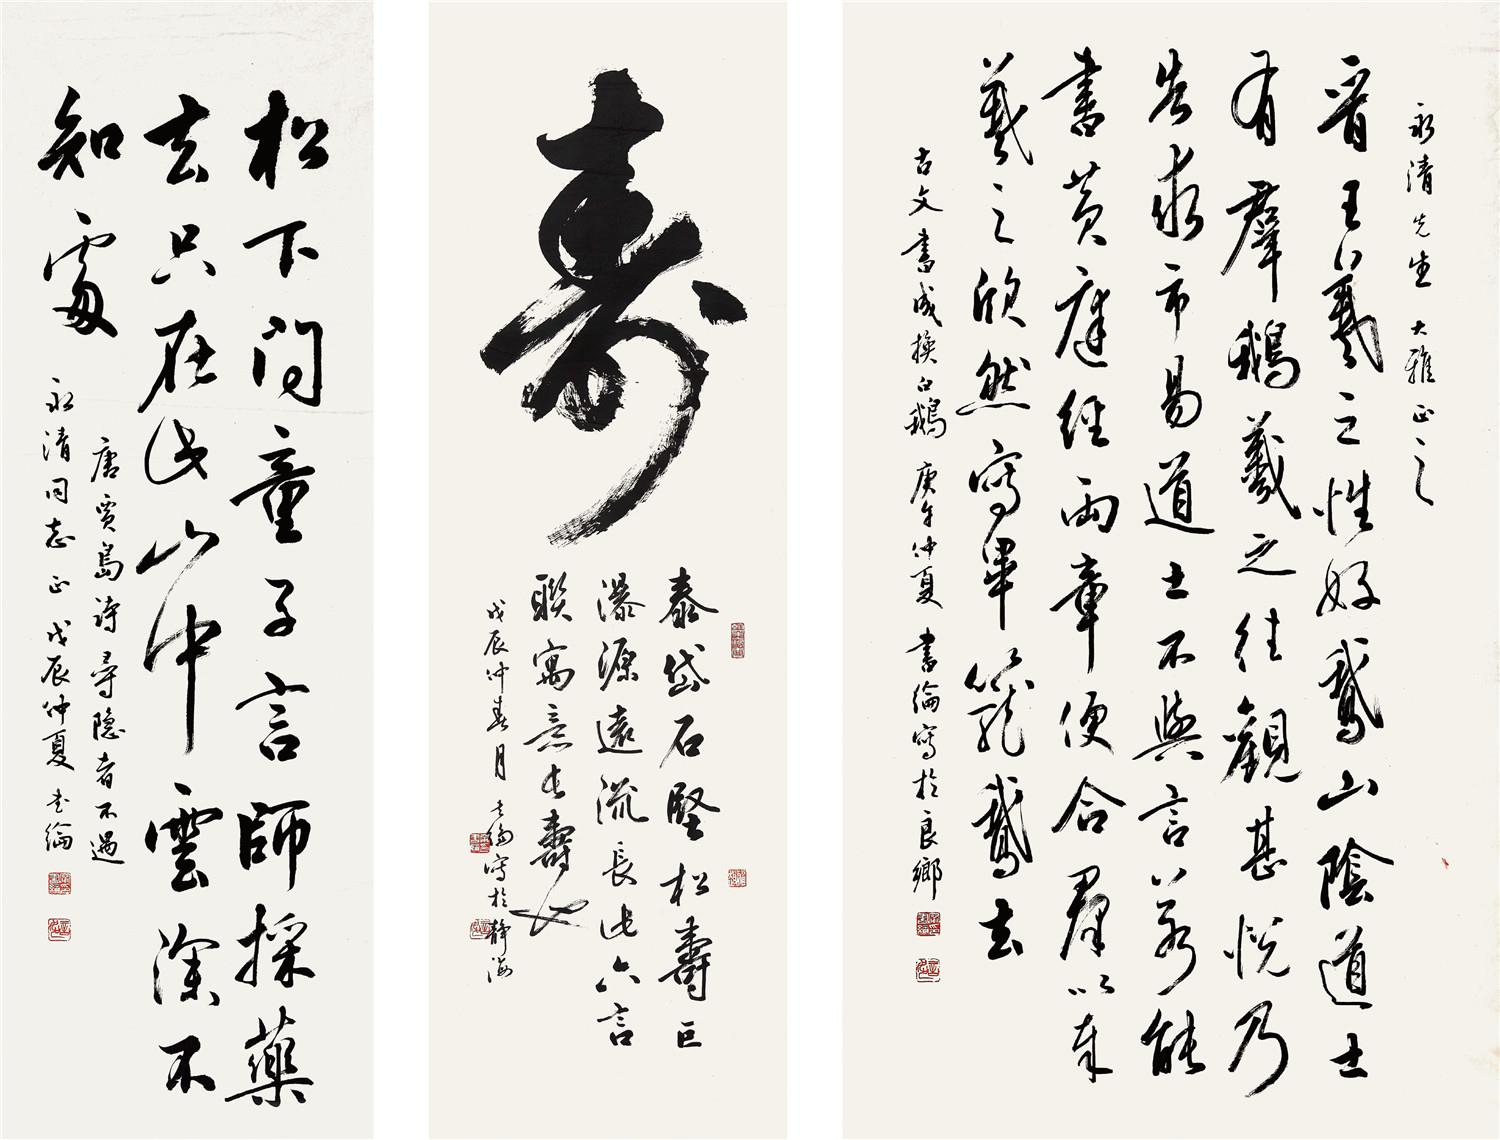 松下问童子言師採藥
去只在此山中雲深不
知處
唐贾島诗尋隐者不遇
永清同志正 戊辰仲夏 书綸
寿
泰岱石堅松壽巨
瀑源遠流長此六言
联寓意长壽也
戊辰仲春月 书綸写於静海
永清先生大雅正之
晋王羲之性好鵞山陰道士
有羣鵝羲之往觀甚悦乃
告求市易道士不與言若能
書黄庭經两章便合群以奉
羲之欣然寫畢籠鵞去
古文書成換白鵝 庚午仲夏 書綸寫於良鄉